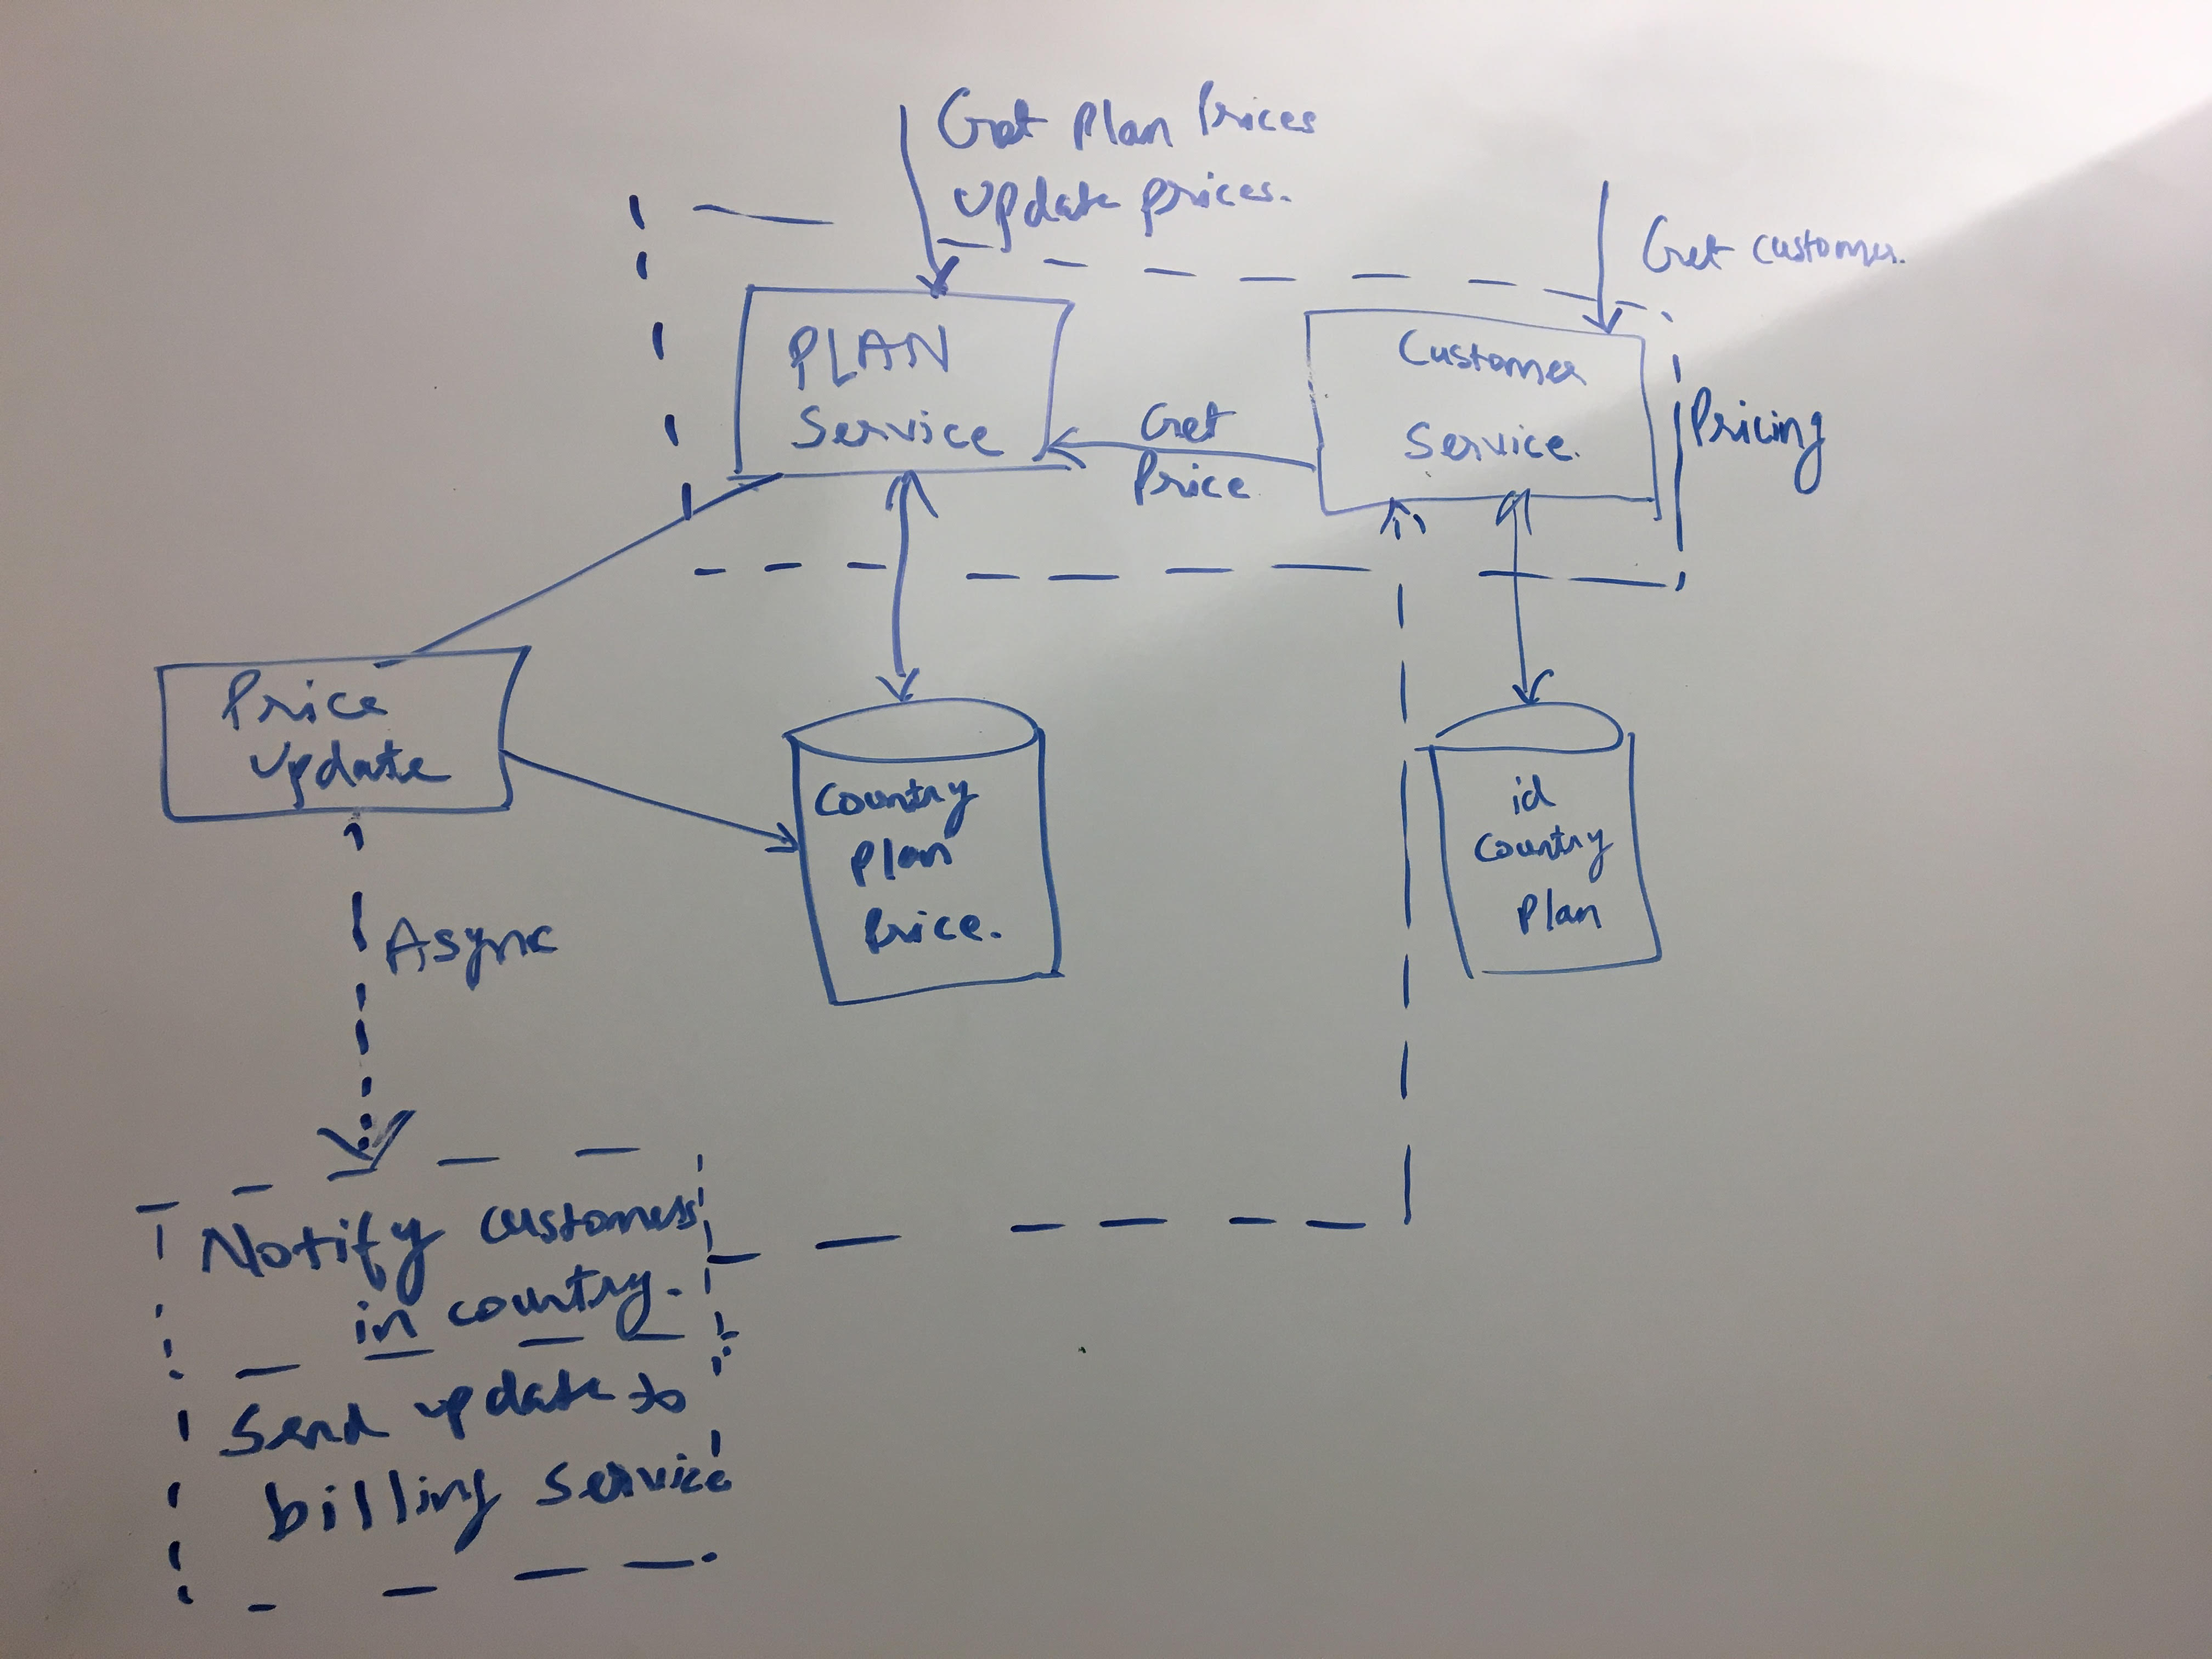 Get Plan Prices
Update prices.
Get customer.
PLAN
Service
Customer
Service.
Get
Price
Pricing
Price
Update
Country
Plan
Price.
id
Country
Plan
Async
Notify customers
in country.
Send update to
billing service